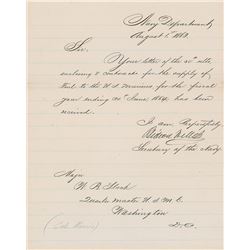 Navy Department,
August 1st 1863.
Sir,
Your letter of the 30th ulto,
enclosing 2 Contracts for the supply of
Fuel to the U.S. Marines for the fiscal
year ending 30th June, 1864, has been
received.
I am Respectfully
Gideon Welles
Secretary of the Navy.
Major
W. B. Slack
Quarter master U.S.M.C.
Washington
D.C.